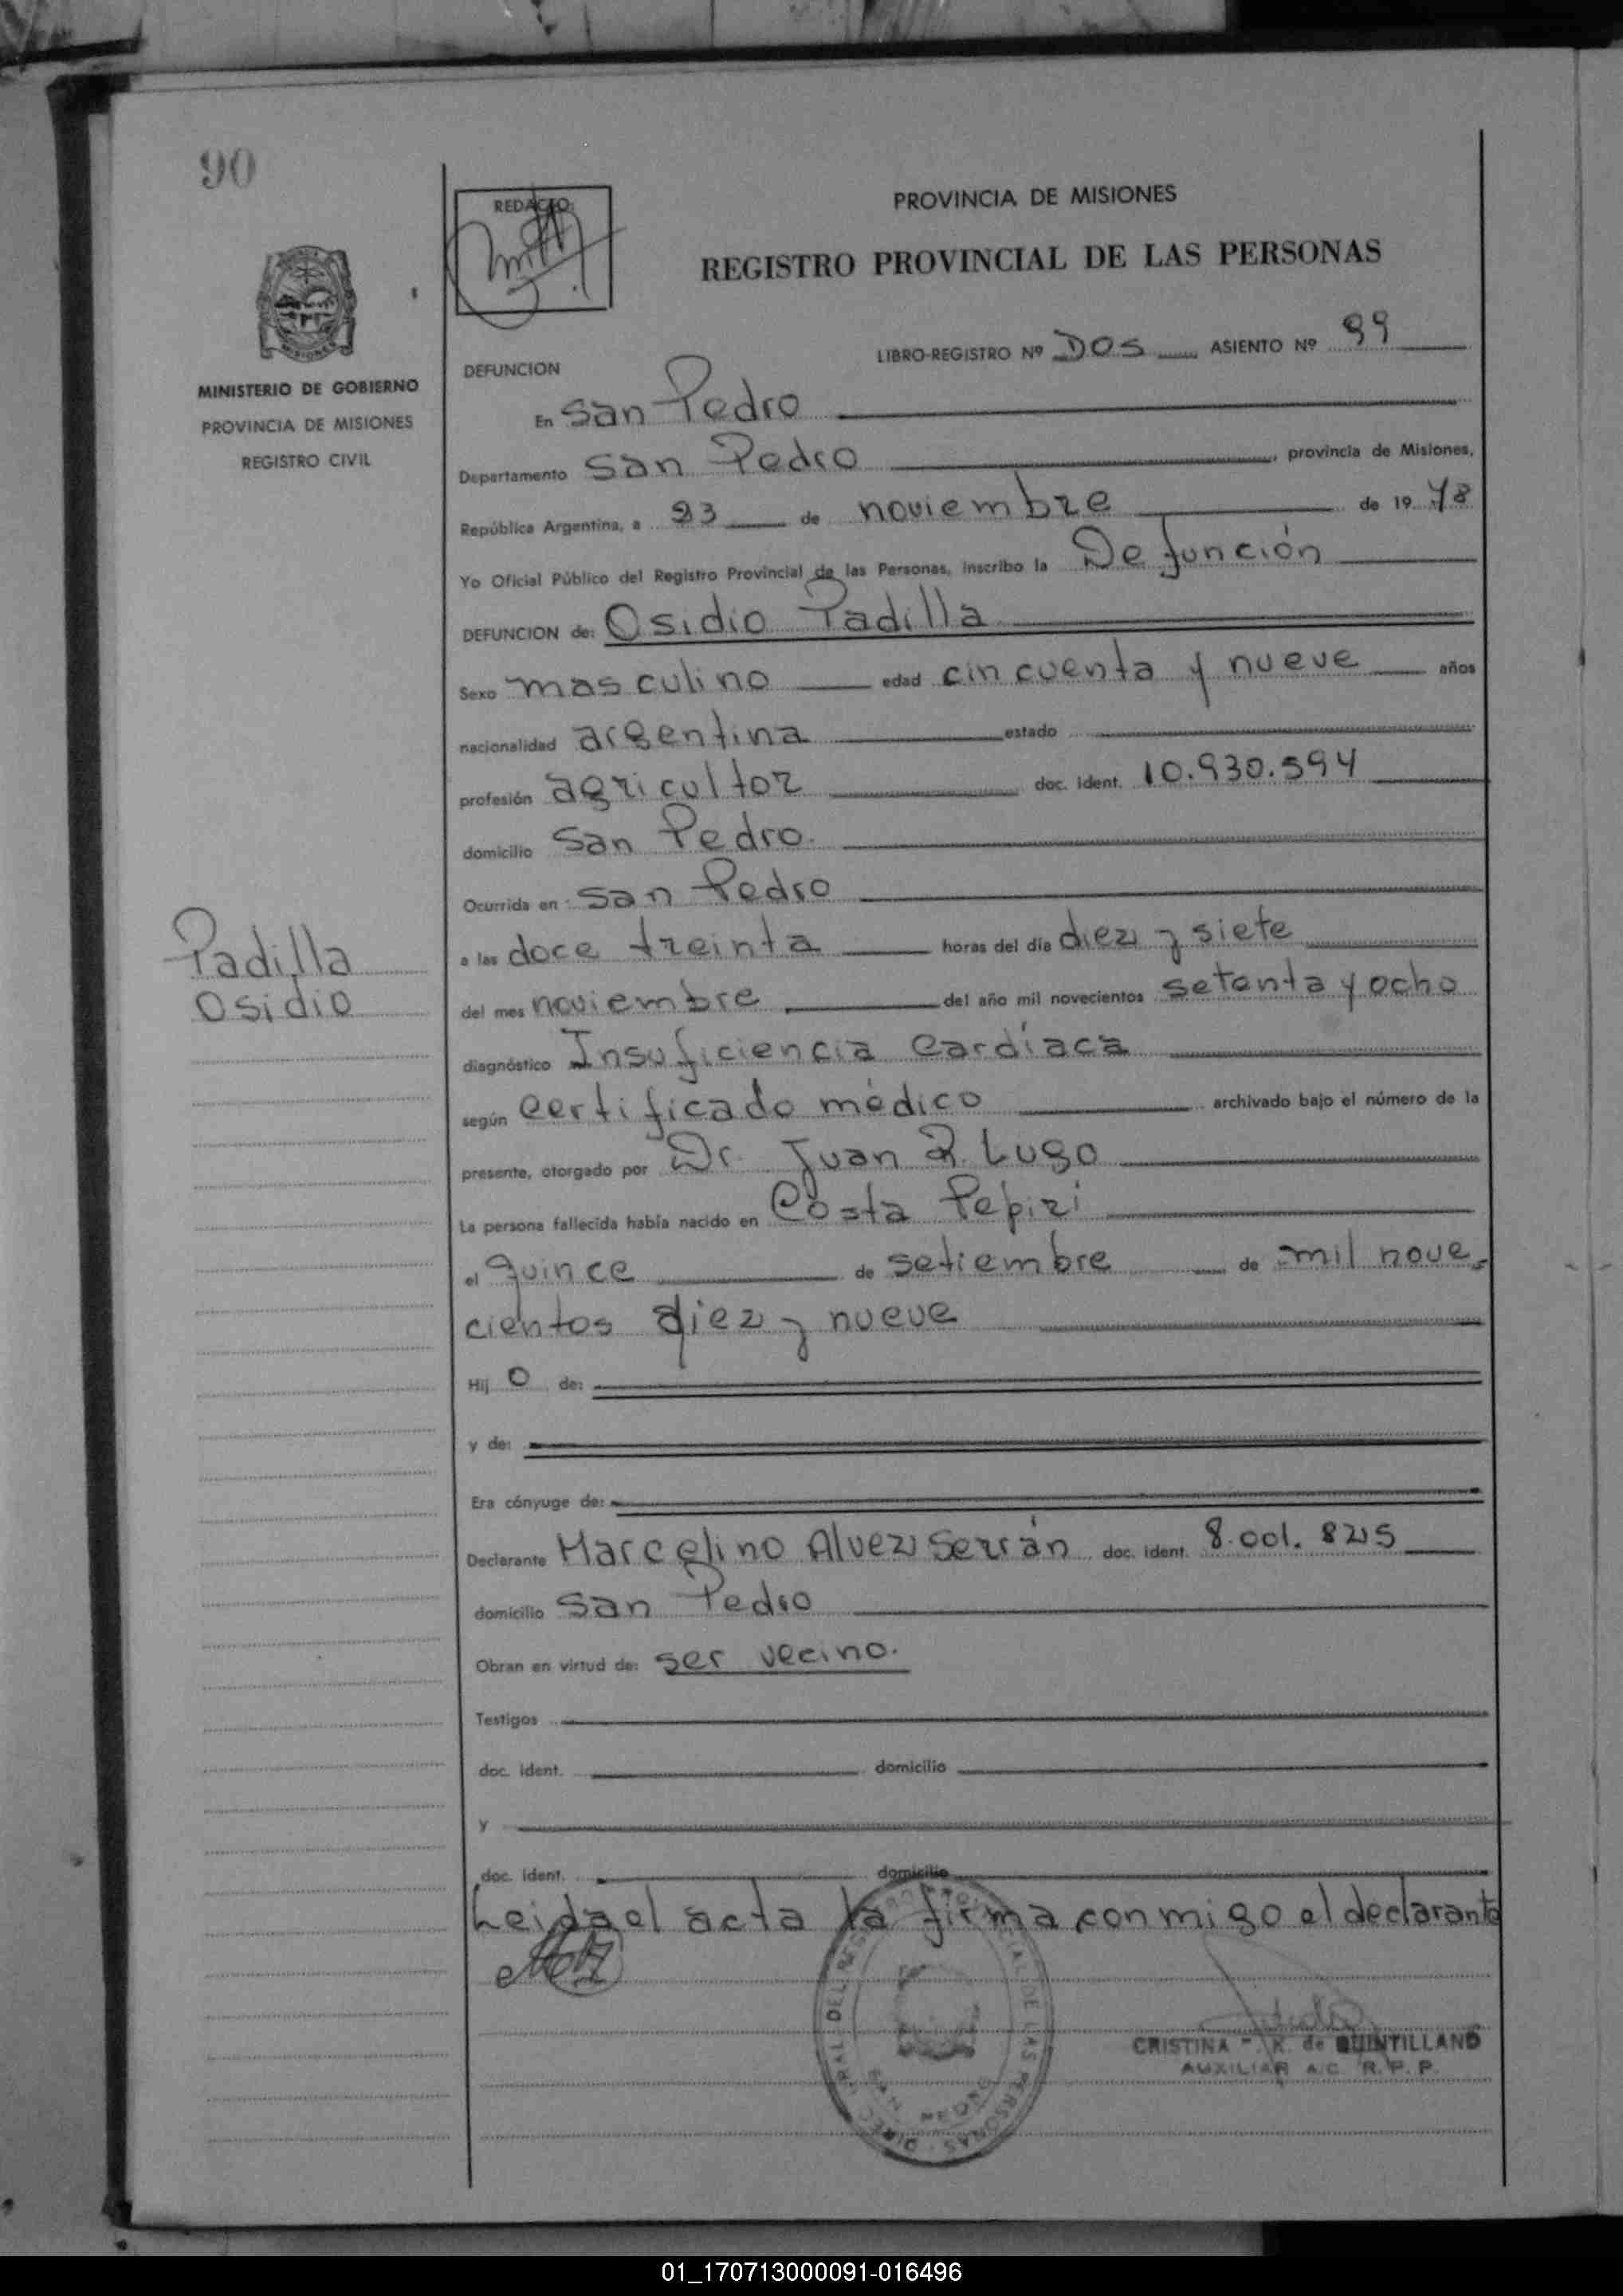 90
REDACTO:
PROVINCIA DE MISIONES
REGISTRO PROVINCIAL DE LAS PERSONAS
MINISTERIO DE GOBIERNO
PROVINCIA DE MISIONES
REGISTRO CIVIL
LIBRO-REGISTRO Nº DOS ASIENTO Nº 99
DEFUNCION
En San Pedro
Departamento San Pedro, provincia de Misiones,
República Argentina, a 23 de noviembre de 19 78
Yo Oficial Público del Registro Provincial de las Personas, inscribo la Defunción
DEFUNCION de: Osidio Padilla
Sexo masculino edad cincuenta y nueve años
nacionalidad argentina estado
profesión agricultor doc. ident. 10.930.594
domicilio San Pedro.
Ocurrida en San Pedro
a las doce treinta horas del día diez y siete
del mes noviembre del año mil novecientos setenta y ocho
diagnóstico Insuficiencia Cardíaca
según Certificado médico archivado bajo el número de la
presente, otorgado por Dr. Juan R. Lugo
La persona fallecida había nacido en Costa Pepirí
el quince de setiembre de mil nove
cientos diez y nueve
Hij o de:
y de:
Era cónyuge de:
Declarante Marcelino Alvez Serrán doc. ident. 8.001.825
domicilio San Pedro
Obran en virtud de: ser vecino.
Testigos
doc. ident. domicilio
y
doc. ident. domicilio
Leida el acta la firma conmigo el declarante
Padilla
Osidio
DIREC. GRAL. DEL REGISTRO PROVINCIAL DE LAS PERSONAS
SAN PEDRO
CRISTINA K. de QUINTILLANO
AUXILIAR A/C R.P.P.
01_170713000091-016496